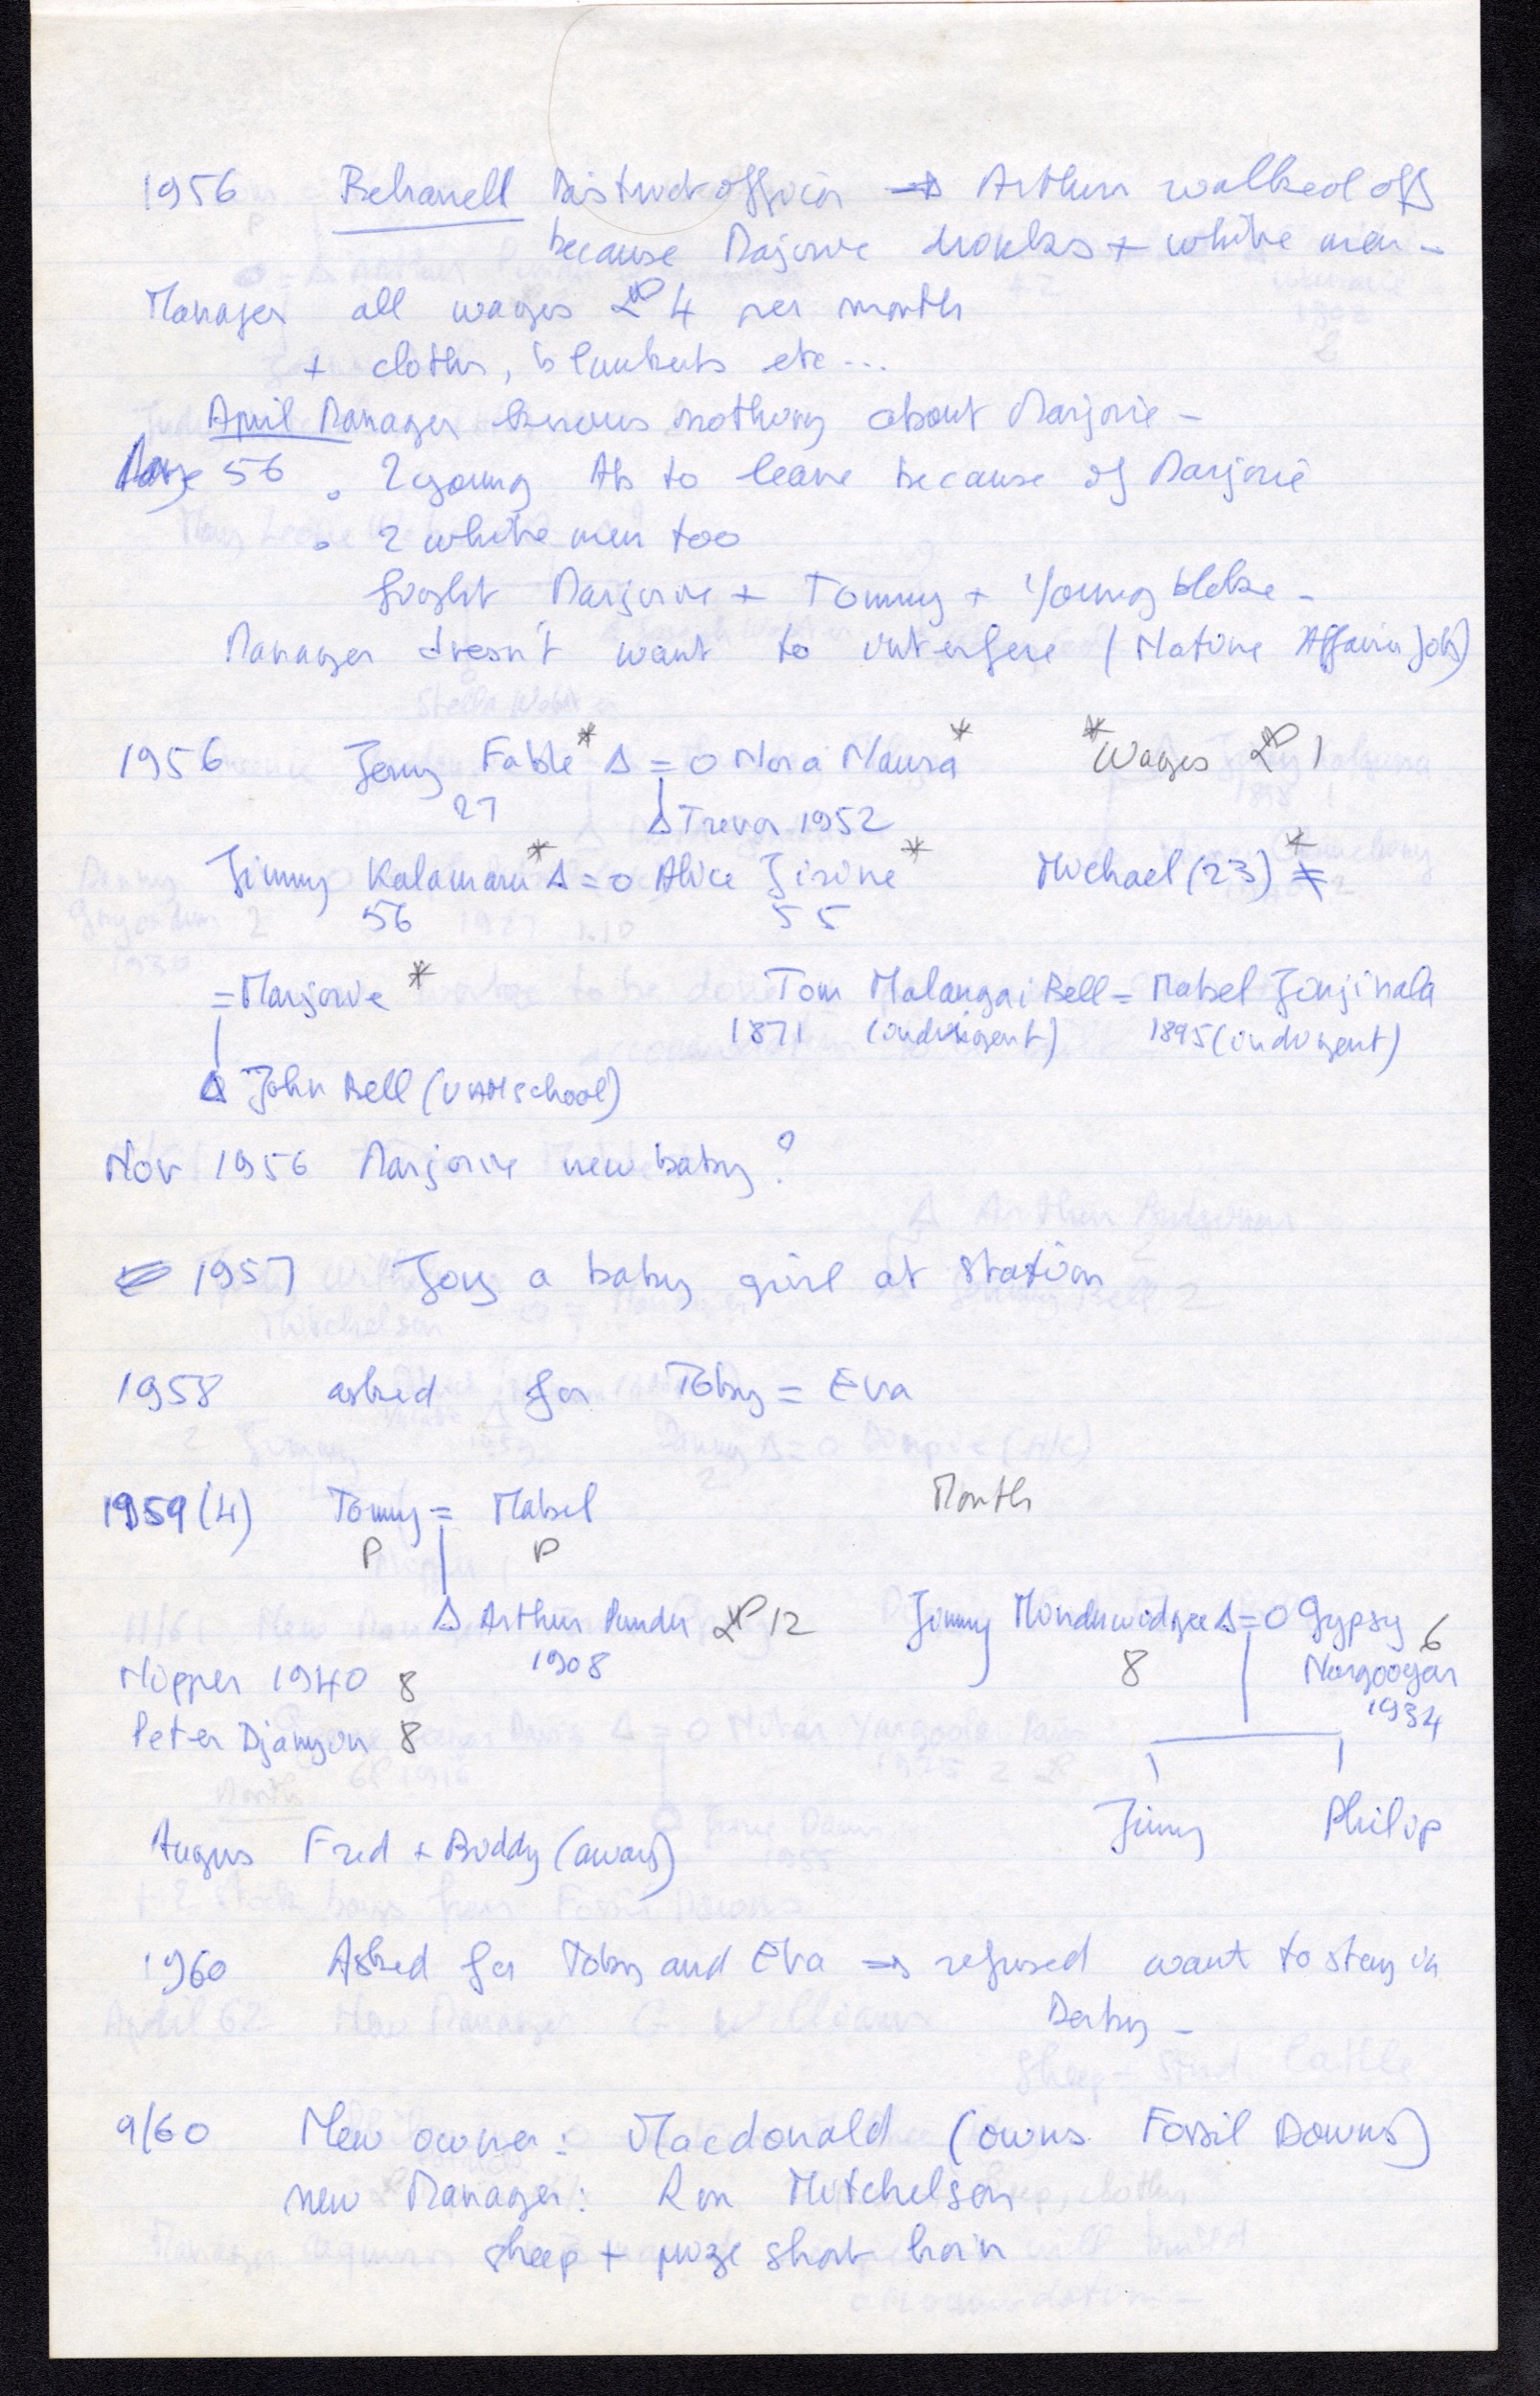 1956 Behanell District officer → Arthur walked off
because Marjorie drinks + white men -
Manager all wages £P 4 per month
+ cloths, blankets etc...
April Manager knows nothing about Marjorie -
56 . 2 young Ab to leave because of Marjorie
. 2 white men too
fught Marjorie + Tommy + Young bloke -
Manager doesn't want to interfere (Native Affairs Job)
1956 Jerry Fable* Δ = O Nora Naura* *Wages £P 1
27 Δ Trevor 1952
Jimmy Kalamaru* Δ = O Alice Jirine* Michael (23)*
56 55
= Marjorie * Tom Malangai Bell = Mabel Jonjinala
1871 (indigent) 1895 (indigent)
Δ John Bell (UAM school)
Nov 1956 Marjorie new baby ?
1957 Joy a baby girl at station
1958 asked for Toby = Eva
1959 (4) Tommy = Mabel Month
P P
Δ Arthur Punder £P 12 Jimmy Minduwidgee Δ = O Gypsy 6
1908 8 Nargoogar
Nipper 1940 8 1934
Peter Djanyon 8
Jimmy Philip
Angus Fred + Buddy (away)
1960 Asked for Toby and Eva → refused want to stay in
Derby -
9/60 New owner : Macdonald (owns Fossil Downs)
new Manager : Ron Mitchelson
sheep + short horn